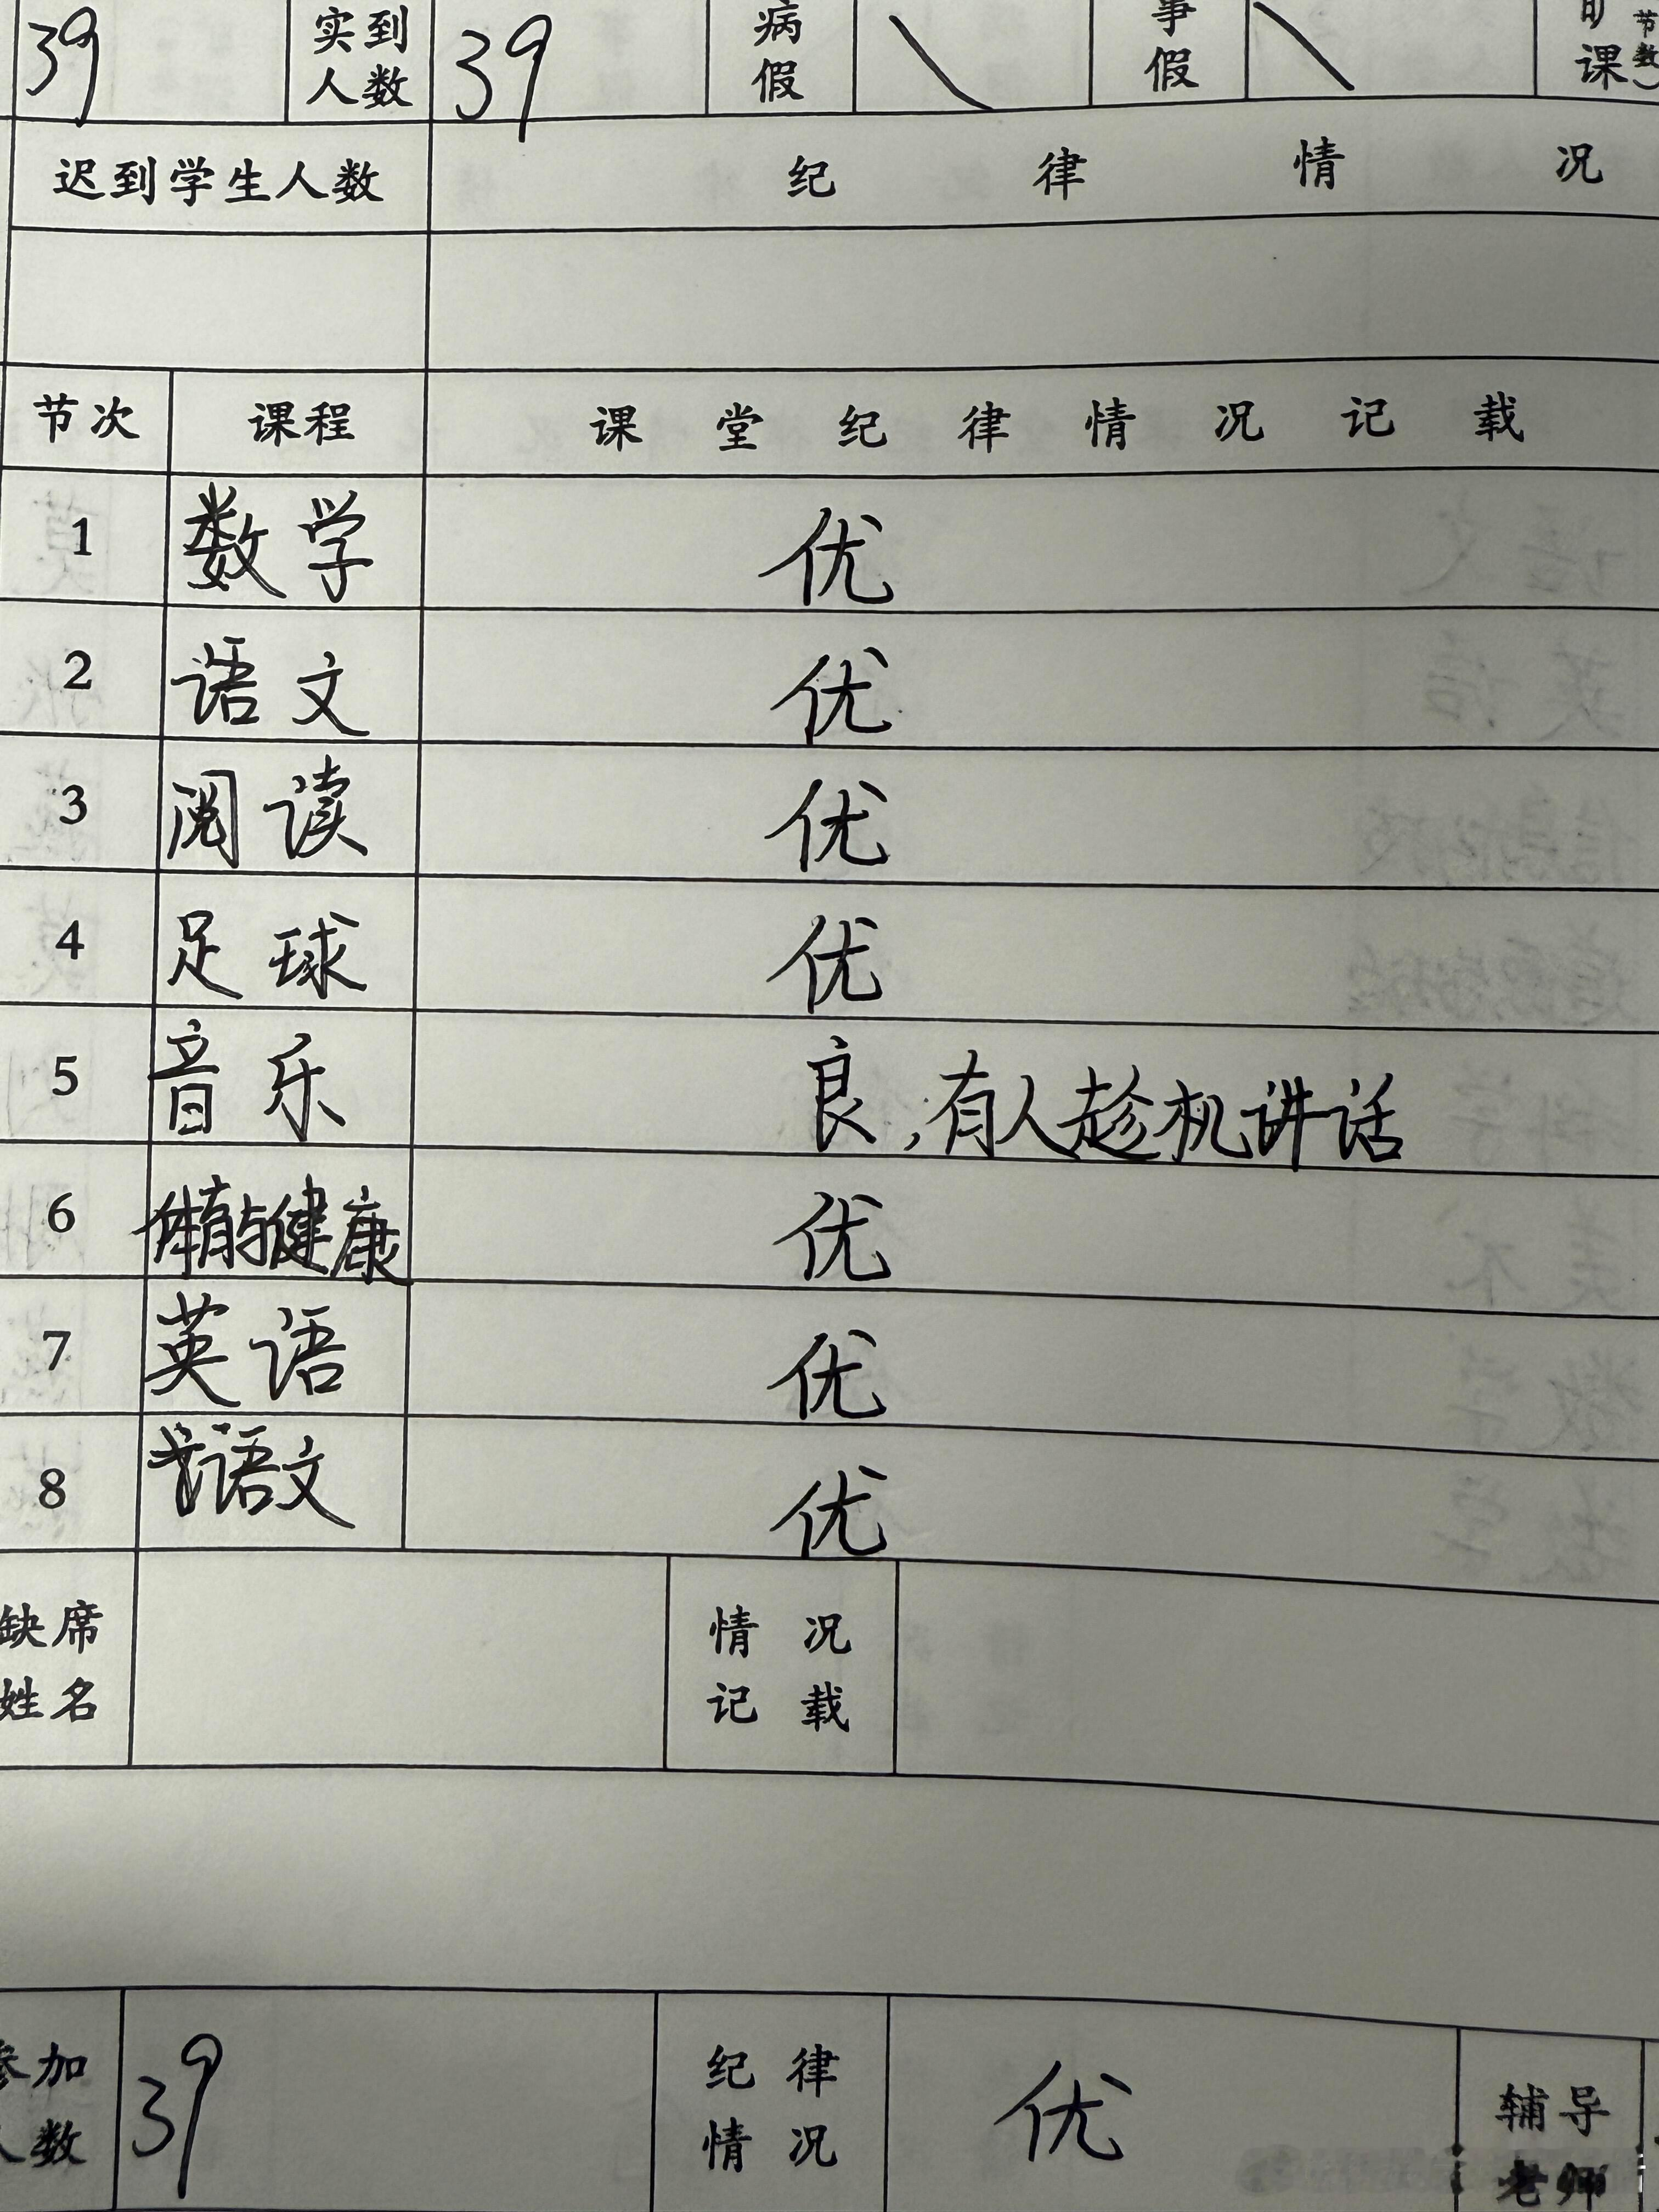 39 实到人数 39 病假 事假 旷课 节数)
迟到学生人数 纪律情况
节次 课程 课堂纪律情况记载
1 数学 优
2 语文 优
3 阅读 优
4 足球 优
5 音乐 良,有人趁机讲话
6 体育与健康 优
7 英语 优
8 语文 优
缺席姓名 情况记载
参加人数 39 纪律情况 优 辅导老师